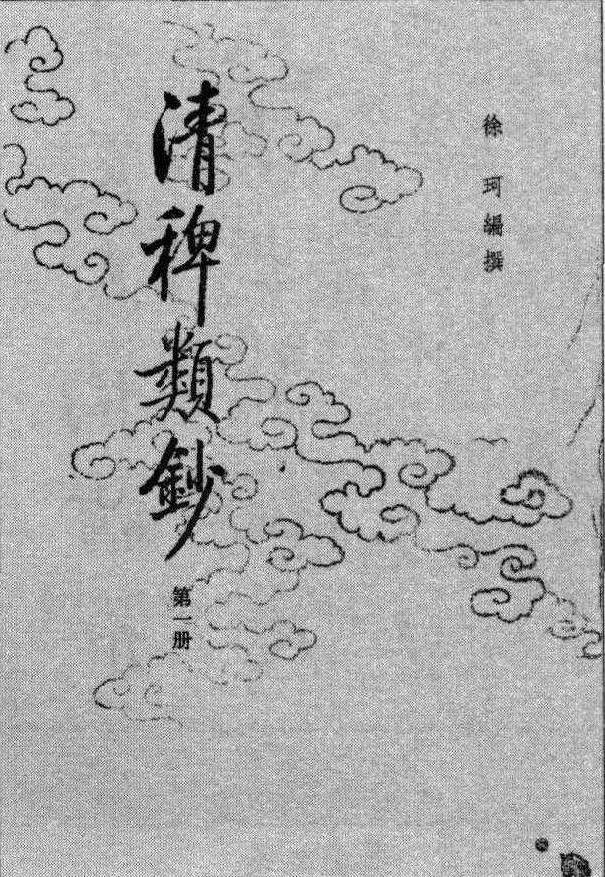 徐珂編撰
清稗類鈔
第一册